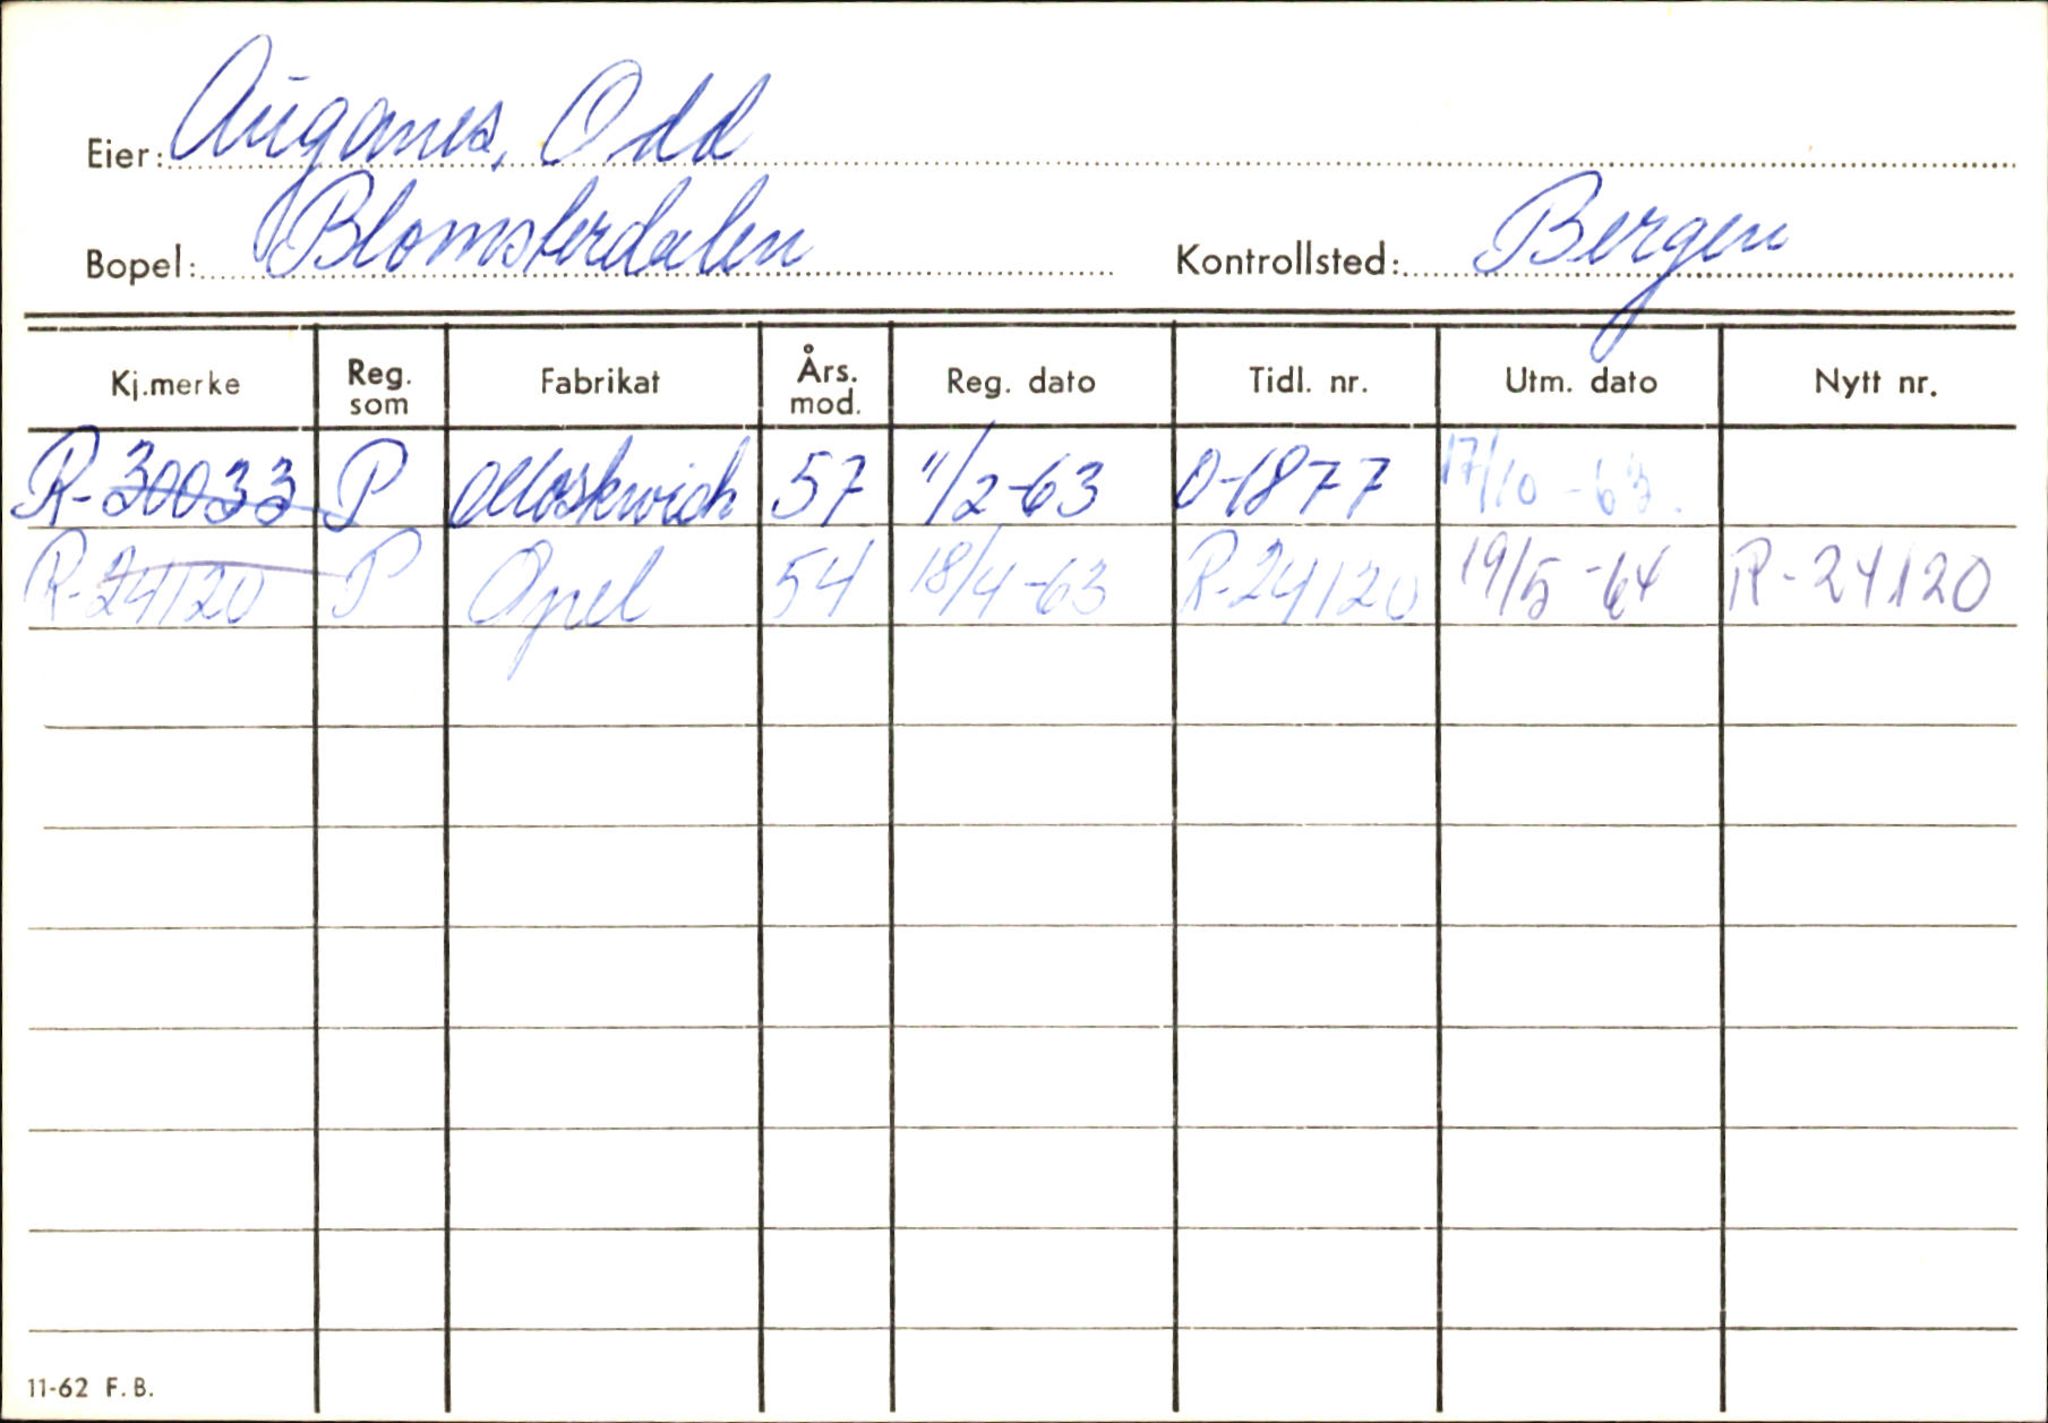 Eier: Auganes, Odd
Bopel: Blomsterdalen Kontrollsted: Bergen
Kj.merke Reg. som Fabrikat Års. mod. Reg. dato Tidl. nr. Utm. dato Nytt nr.
R-30033 P Moskwich 57 11/2-63 O-1877 17/10-63.
R-24120 P Opel 54 18/4-63 R-24120 19/5-64 R-24120
11-62 F.B.